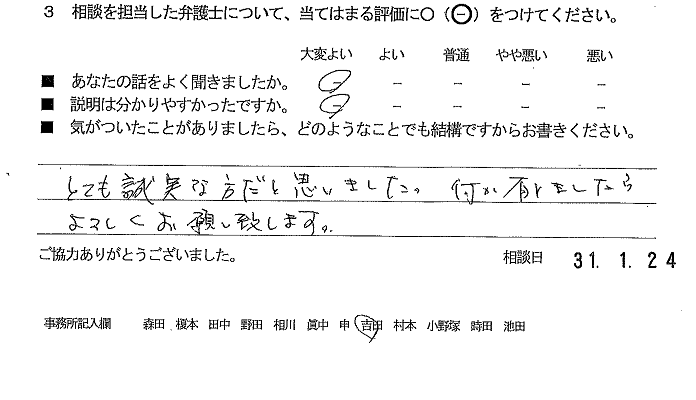 3 相談を担当した弁護士について、当てはまる評価に○（㊀）をつけてください。
大変よい よい 普通 やや悪い 悪い
■ あなたの話をよく聞きましたか。 － － － － －
■ 説明は分かりやすかったですか。 － － － － －
■ 気がついたことがありましたら、どのようなことでも結構ですからお書きください。
とても誠実な方だと思いました。 何か有りましたら
よろしくお願い致します。
ご協力ありがとうございました。 相談日 31. 1. 24
事務所記入欄 森田 榎本 田中 野田 相川 眞中 申 吉田 村本 小野塚 時田 池田